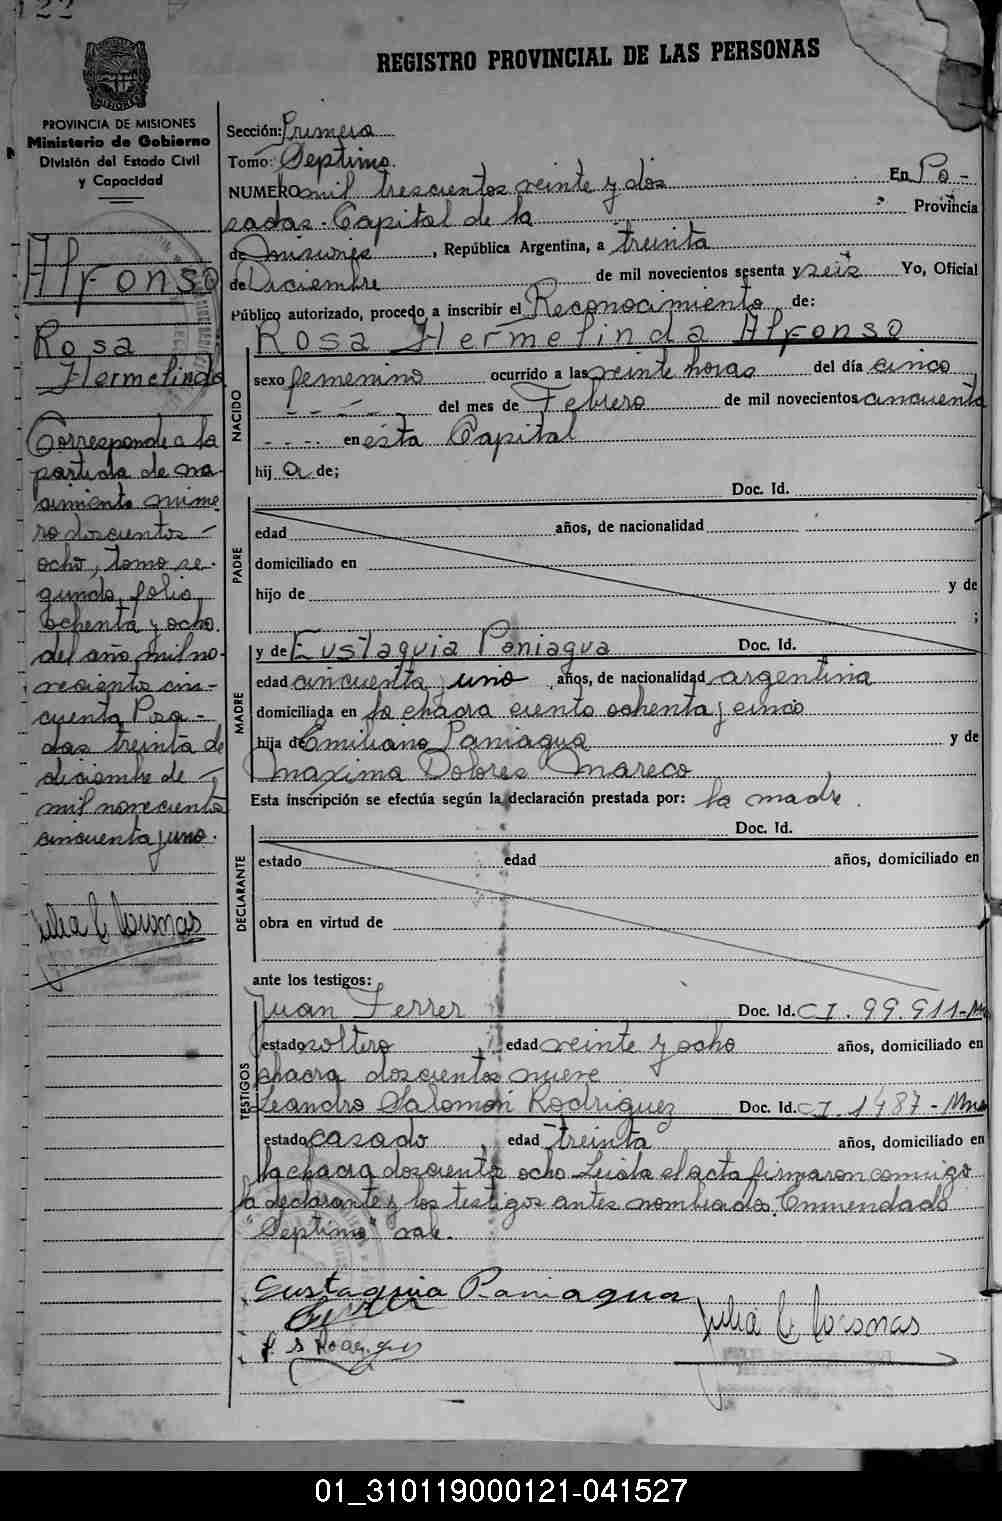 122
REGISTRO PROVINCIAL DE LAS PERSONAS
PROVINCIA DE MISIONES
Ministerio de Gobierno
División del Estado Civil
y Capacidad
Alfonso
Rosa
Hermelinda
Corresponde a la
partida de na-
cimiento núme
ro doscientos
ocho, tomo se-
gundo, folio
ochenta y ocho
del año mil no-
vecientos cin-
cuenta Posa-
das treinta de
diciembre de
mil novecientos
cincuenta y uno.
Julia C
Sección: Primera
Tomo: Septimo.
NUMERO mil trescientos veinte y dos En Po-
sadas. Capital de la Provincia
de Misiones, República Argentina, a treinta
de Diciembre de mil novecientos sesenta y seis Yo, Oficial
Público autorizado, procedo a inscribir el Reconocimiento de:
Rosa Hermelinda Alfonso
NACIDO
sexo femenino ocurrido a las veinte horas del día cinco
del mes de Febrero de mil novecientos cincuenta
en esta Capital
hij a de;
PADRE
Doc. Id.
edad años, de nacionalidad
domiciliado en
hijo de y de
;
MADRE
y de Eustaquia Paniagua Doc. Id.
edad cincuenta y uno, años, de nacionalidad argentina
domiciliada en la chacra ciento ochenta y cinco
hija de Emiliano Paniagua y de
Maxima Dolores Mareco
Esta inscripción se efectúa según la declaración prestada por: la madre.
DECLARANTE
Doc. Id.
estado edad años, domiciliado en
obra en virtud de
ante los testigos:
TESTIGOS
Juan Ferrer Doc. Id. CI. 99.911-Mns
estado soltero, edad veinte y ocho años, domiciliado en
chacra doscientos nueve
Leandro Salomón Rodriguez Doc. Id. CI. 1487-Mns
estado casado, edad treinta años, domiciliado en
la chacra doscientos ocho. Leida el acta firmaron conmigo
la declarante y los testigos antes nombrados. Enmendado
"Septimo" vale.
Eustaquia Paniagua
Julia C
L. S. Rodriguez
01_310119000121-041527